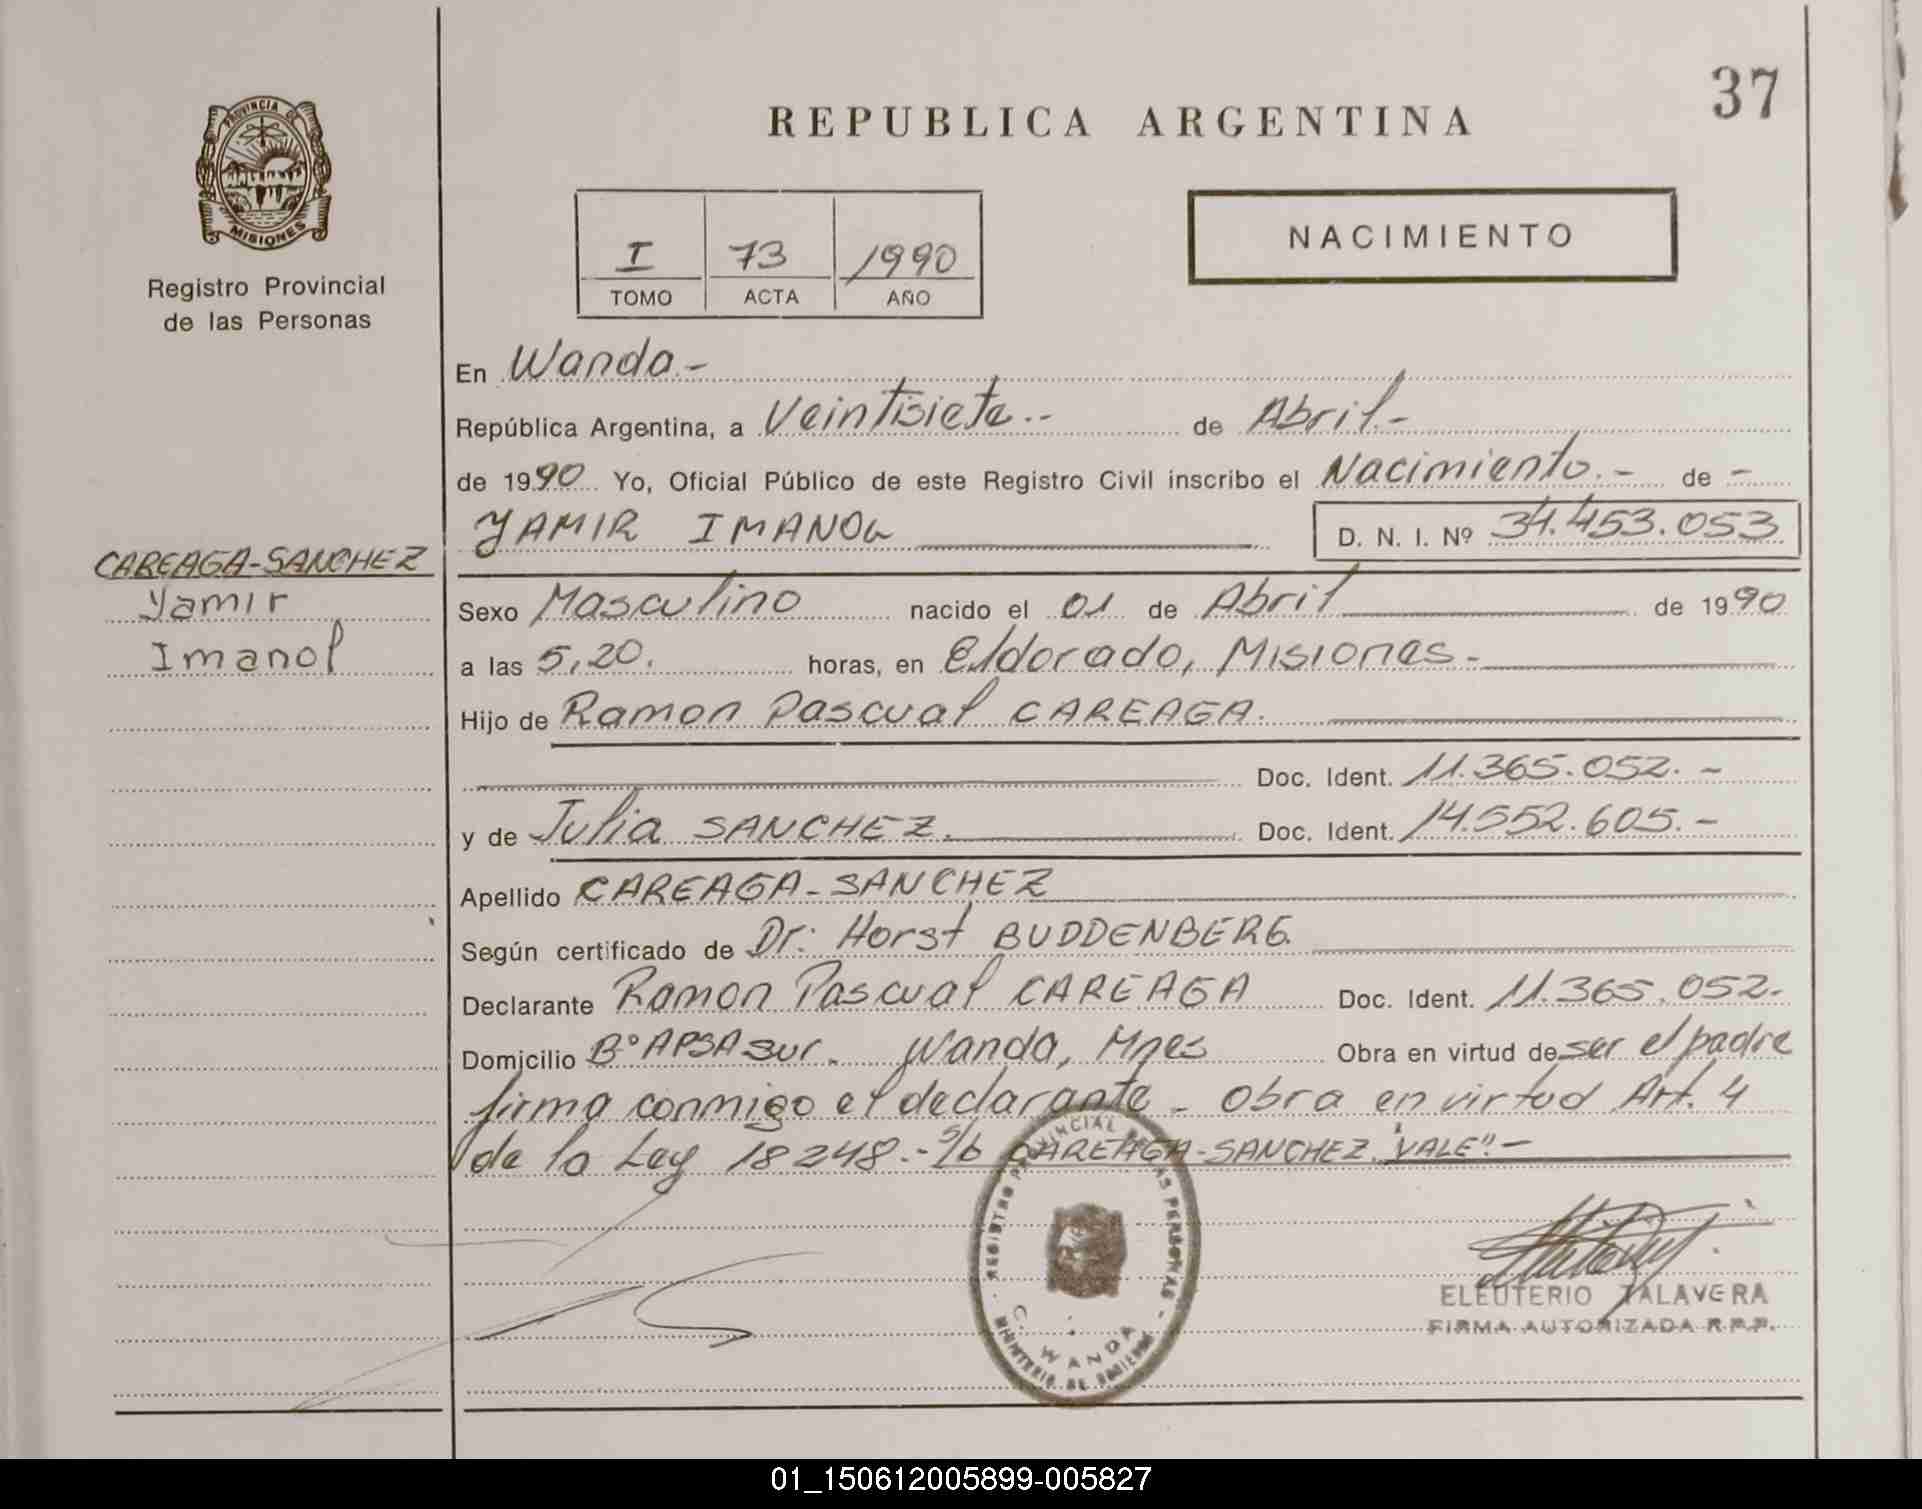 37
REPUBLICA ARGENTINA
PROVINCIA DE
MISIONES
Registro Provincial
de las Personas
I 73 1990
TOMO ACTA AÑO
NACIMIENTO
En Wanda.-
República Argentina, a Veintisiete.-- de Abril.-
de 1990 Yo, Oficial Público de este Registro Civil inscribo el Nacimiento.- de -
YAMIR IMANOL D. N. I. Nº 34.453.053
CAREAGA-SANCHEZ
Yamir
Imanol
Sexo Masculino nacido el 01 de Abril de 1990
a las 5,20. horas, en Eldorado, Misiones.-
Hijo de Ramon Pascual CAREAGA.
Doc. Ident. 11.365.052.-
y de Julia SANCHEZ. Doc. Ident. 14.552.605.-
Apellido CAREAGA-SANCHEZ
Según certificado de Dr: Horst BUDDENBERG.
Declarante Ramon Pascual CAREAGA Doc. Ident. 11.365.052.
Domicilio Bº APSA sur. Wanda, Mnes Obra en virtud de ser el padre
firma conmigo el declarante - Obra en virtud Art. 4
de la Ley 18248.- s/b CAREAGA-SANCHEZ "VALE".-
REGISTRO PROVINCIAL DE LAS PERSONAS
C. WANDA
MINISTERIO DE GOBIERNO
ELEUTERIO TALAVERA
FIRMA AUTORIZADA R.P.P.
01_150612005899-005827